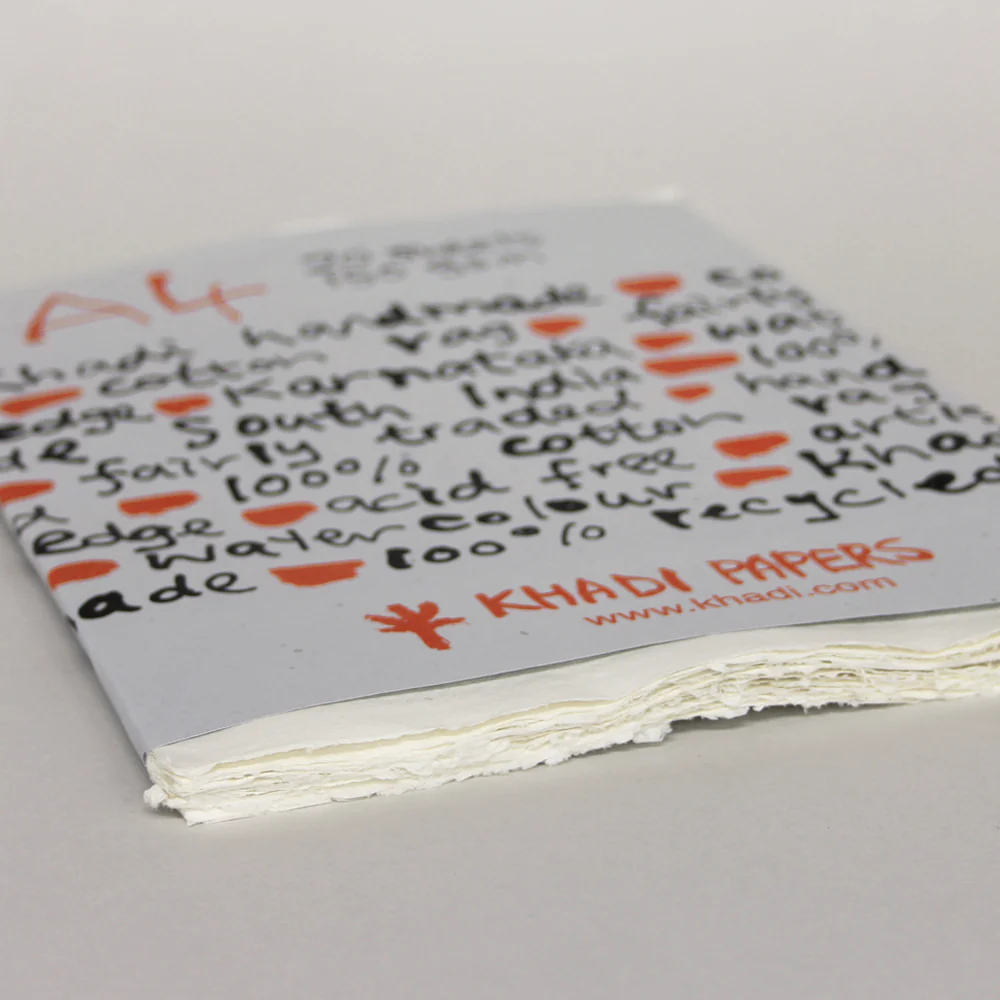 A4
Sheets
gsm
khadi handmade co
cotton rag fairly
edge Karnataka wat
de South India 100%
fairly traded hand
100% cotton rag
edge acid free artis
watercolour khad
ade 100% recycled
KHADI PAPERS
www.khadi.com